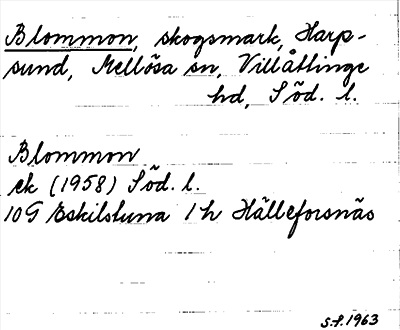 Blommon, skogsmark, Harp-
sund, Mellösa sn, Villåttinge
hd, Söd. l.
Blommon
ek (1958) Söd. l.
10G Eskilstuna 1h Hälleforsnäs
S.f. 1963